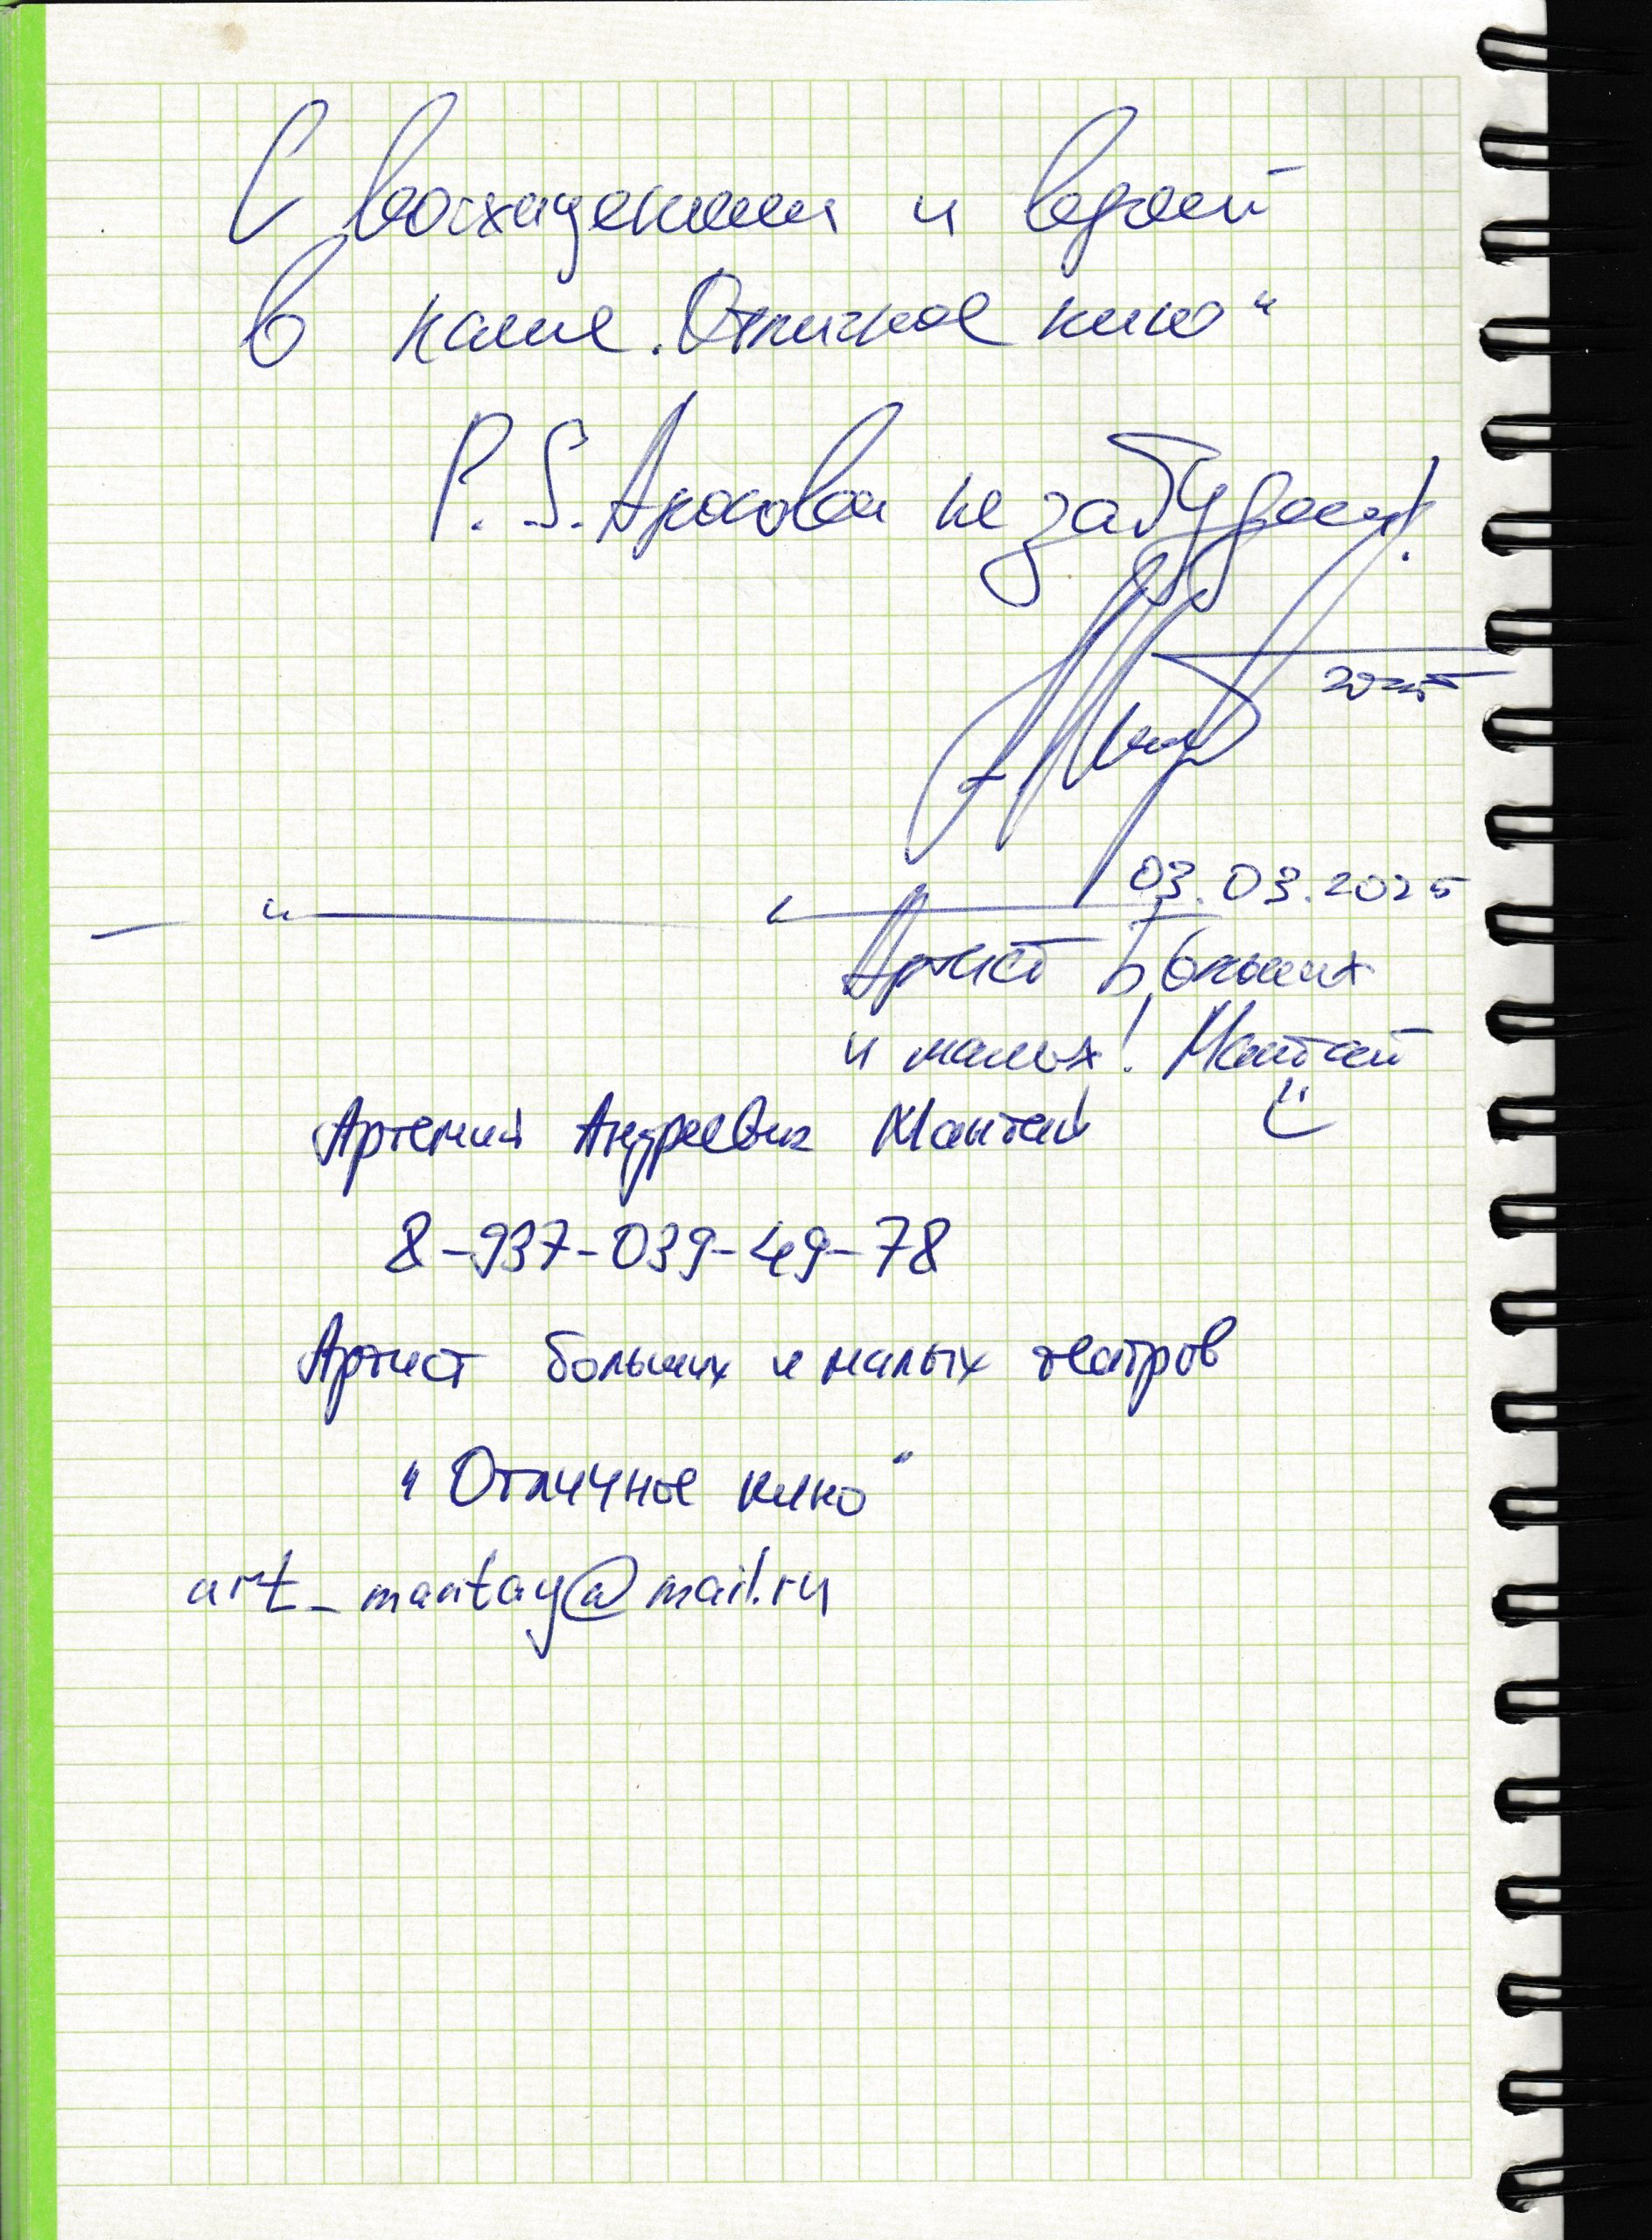 С восхищением и верой
в наше „Отличное кино“
P.S. Аросеву не забудем!
2025
03.03.2025
Артист Больших
и малых! Мантай
Артемий Андреевич Мантай
8-937-039-49-78
Артист больших и малых театров
"Отличное кино"
art_mantay@mail.ru